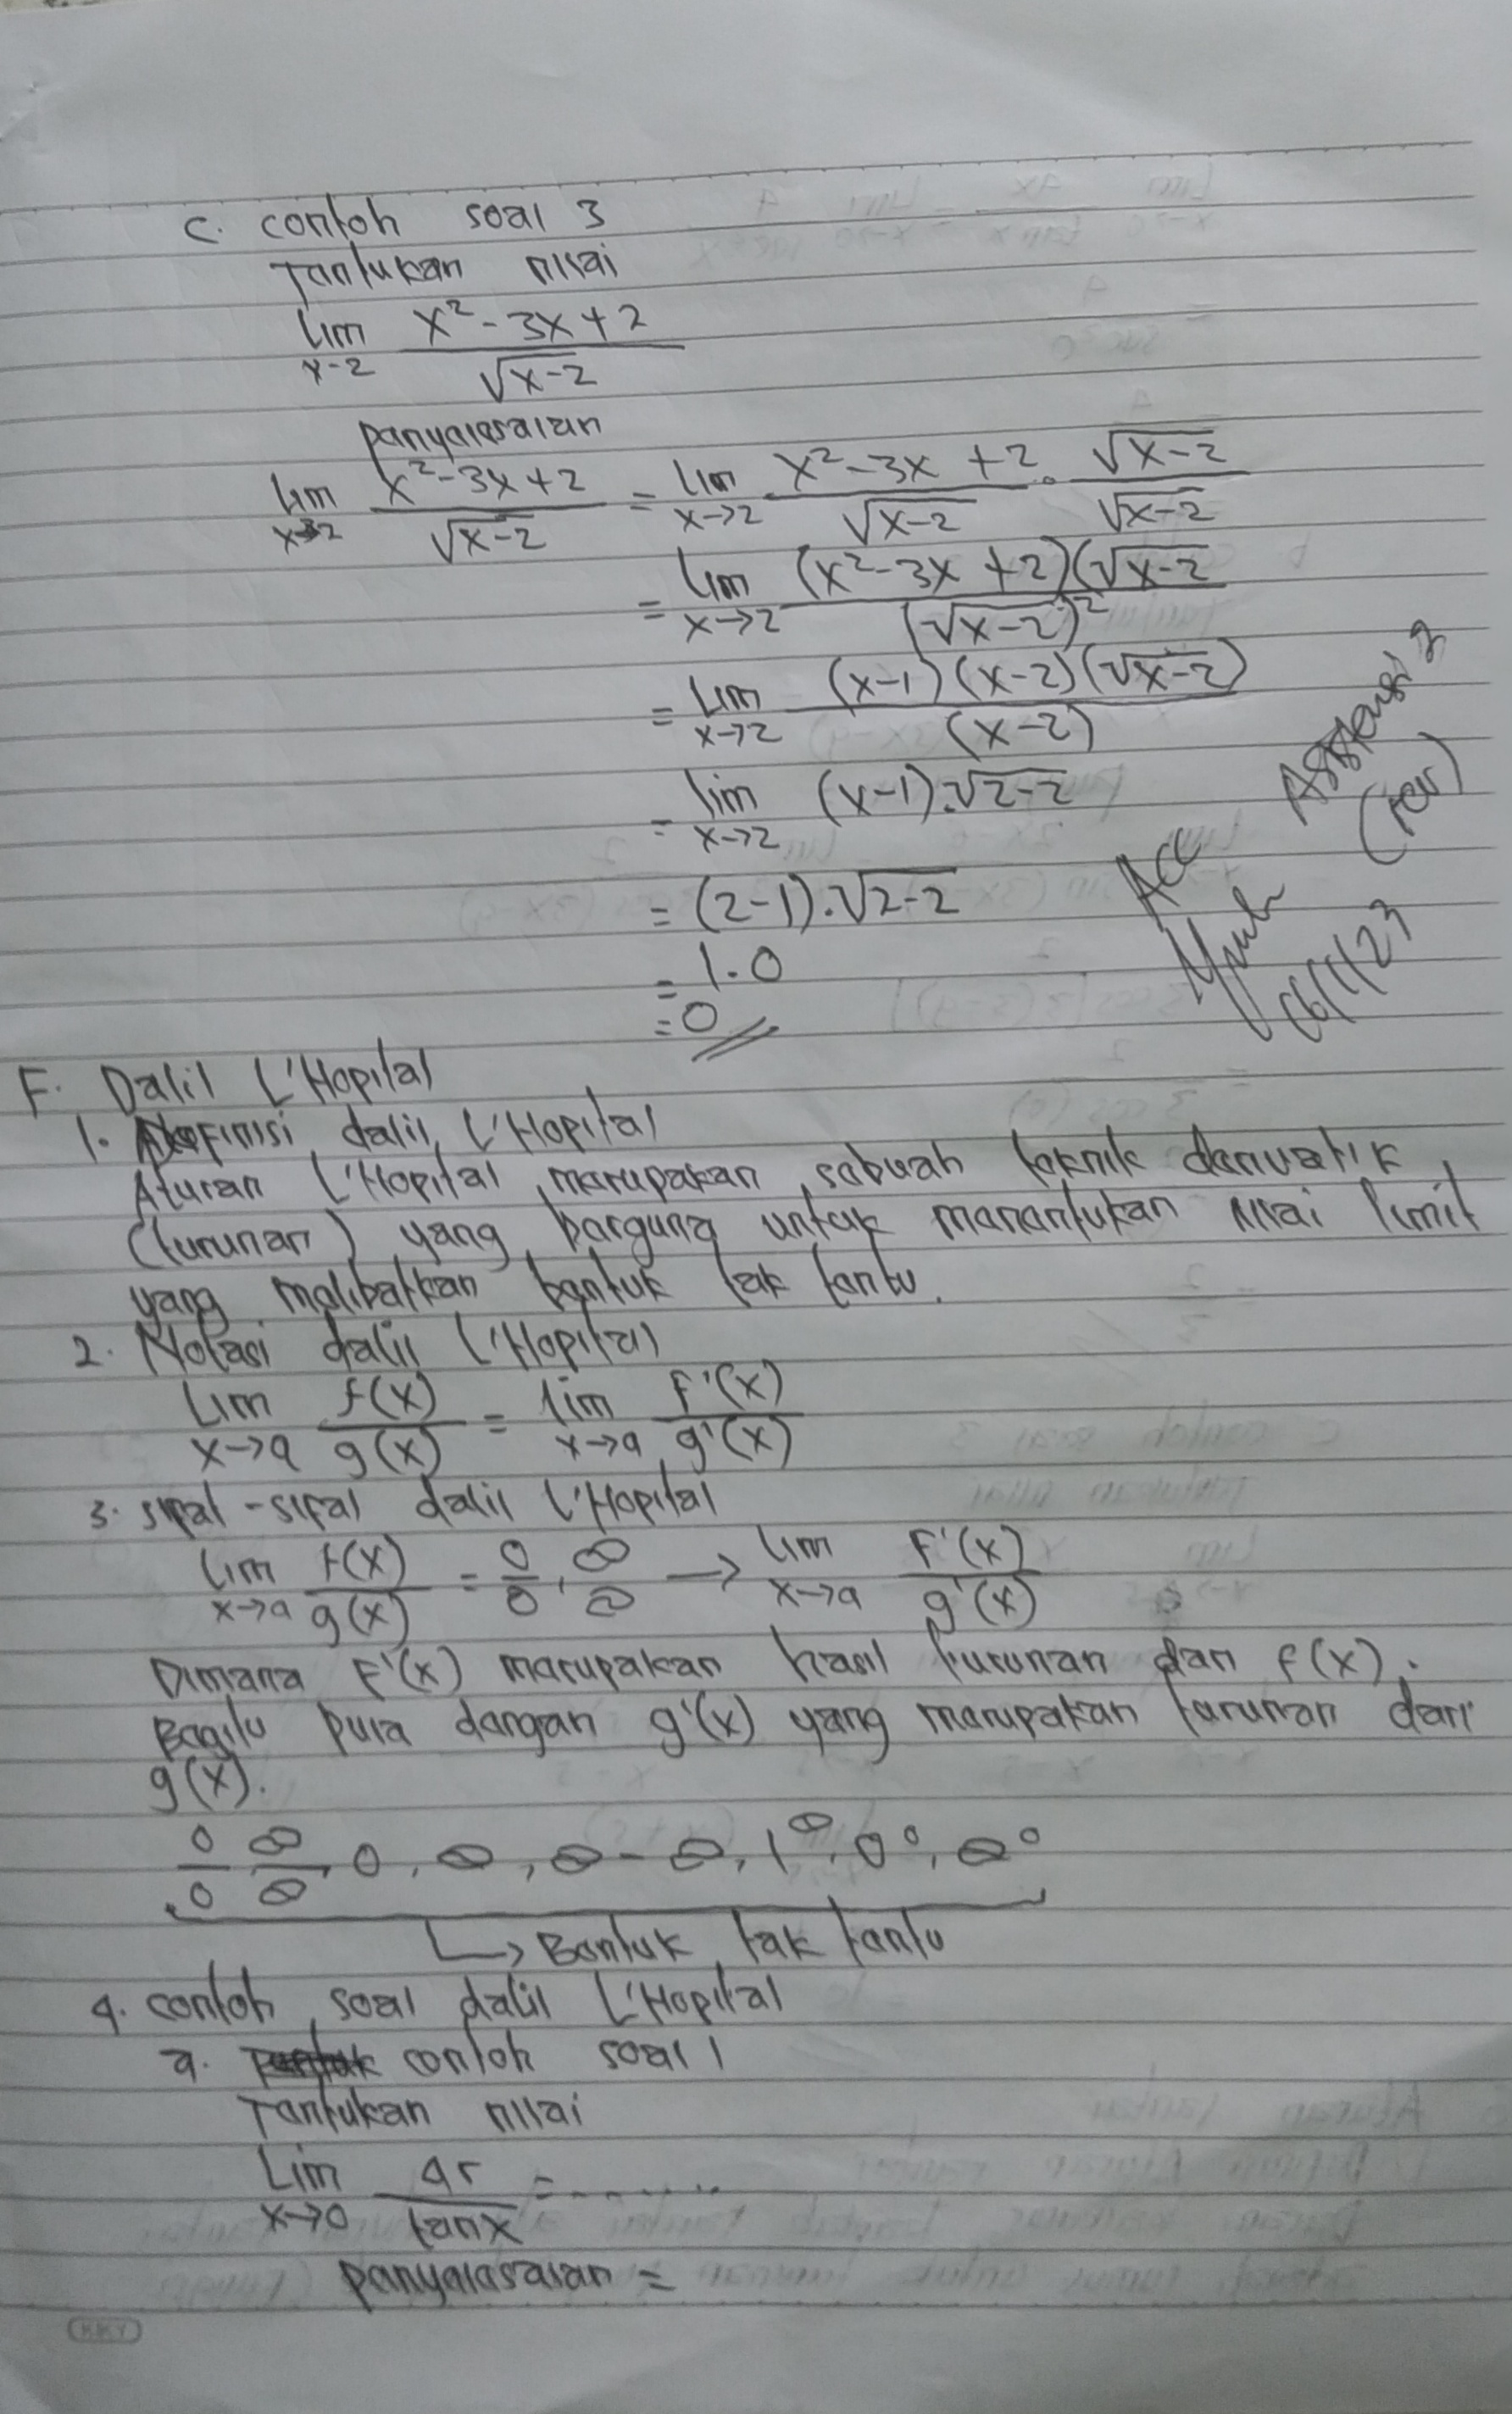 C. contoh soal 3
Tentukan nilai
lim x-2 x² - 3x + 2 / √x-2
penyelesaian
lim x→2 x² - 3x + 2 / √x-2 = lim x→2 x² - 3x + 2 / √x-2 . √x-2 / √x-2
= lim x→2 (x² - 3x + 2)(√x-2 / (√x-2)²
= lim x→2 (x-1)(x-2)(√x-2) / (x-2)
= lim x→2 (x-1).√2-2
= (2-1).√2-2
= 1.0
= 0
Acc
06/1/23
F. Dalil L'Hopital
1. Definisi dalil L'Hopital
Aturan L'Hopital merupakan sebuah teknik derivatik
(turunan) yang berguna untuk menentukan nilai limit
yang melibatkan bentuk tak tentu.
2. Notasi dalil L'Hopital
Lim x→a f(x) / g(x) = lim x→a f'(x) / g'(x)
3. sifat-sifat dalil L'Hopital
lim x→a f(x) / g(x) = 0/0 , ∞/∞ → lim x→a f'(x) / g'(x)
Dimana f'(x) merupakan hasil turunan dan f(x).
Begitu pula dengan g'(x) yang merupakan turunan dari
g(x).
0/0 ∞/∞, 0, ∞, ∞ - ∞, 1^∞, 0⁰, ∞⁰
↳ Bentuk tak tentu
4. contoh soal dalil L'Hopital
a. contoh soal 1
Tentukan nilai
Lim x→0 4x / tan x = .......
penyelesaian =
KKY